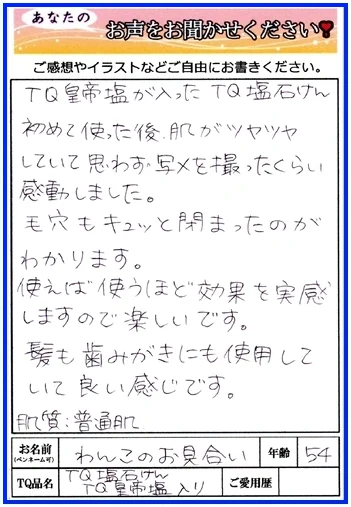 あなたの
お声をお聞かせください
ご感想やイラストなどご自由にお書きください。
TQ皇帝塩が入ったTQ塩石けん
初めて使った後、肌がツヤツヤ
していて思わず写メを撮ったくらい
感動しました。
毛穴もキュッと閉まったのが
わかります。
使えば使うほど効果を実感
しますので楽しいです。
髪も歯みがきにも使用して
いて良い感じです。
肌質:普通肌
お名前
(ペンネーム可)
わんこのお見合い
年齢
54
TQ品名
TQ塩石けん
TQ皇帝塩入り
ご愛用歴